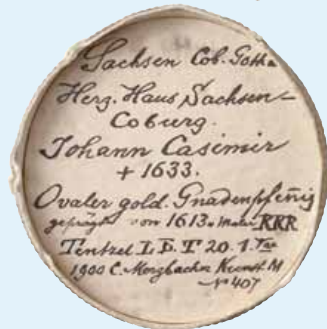 Sachsen Cob. Gotha
Herz. Haus Sachsen-
Coburg.
Johann Casimir
+ 1633.
Ovaler gold. Gnadenpfeñig
geprägt von 1613. RRR
Tentzel L. E. T 20. 1.
1900 C. Merzbacher Kunst. M
No 407